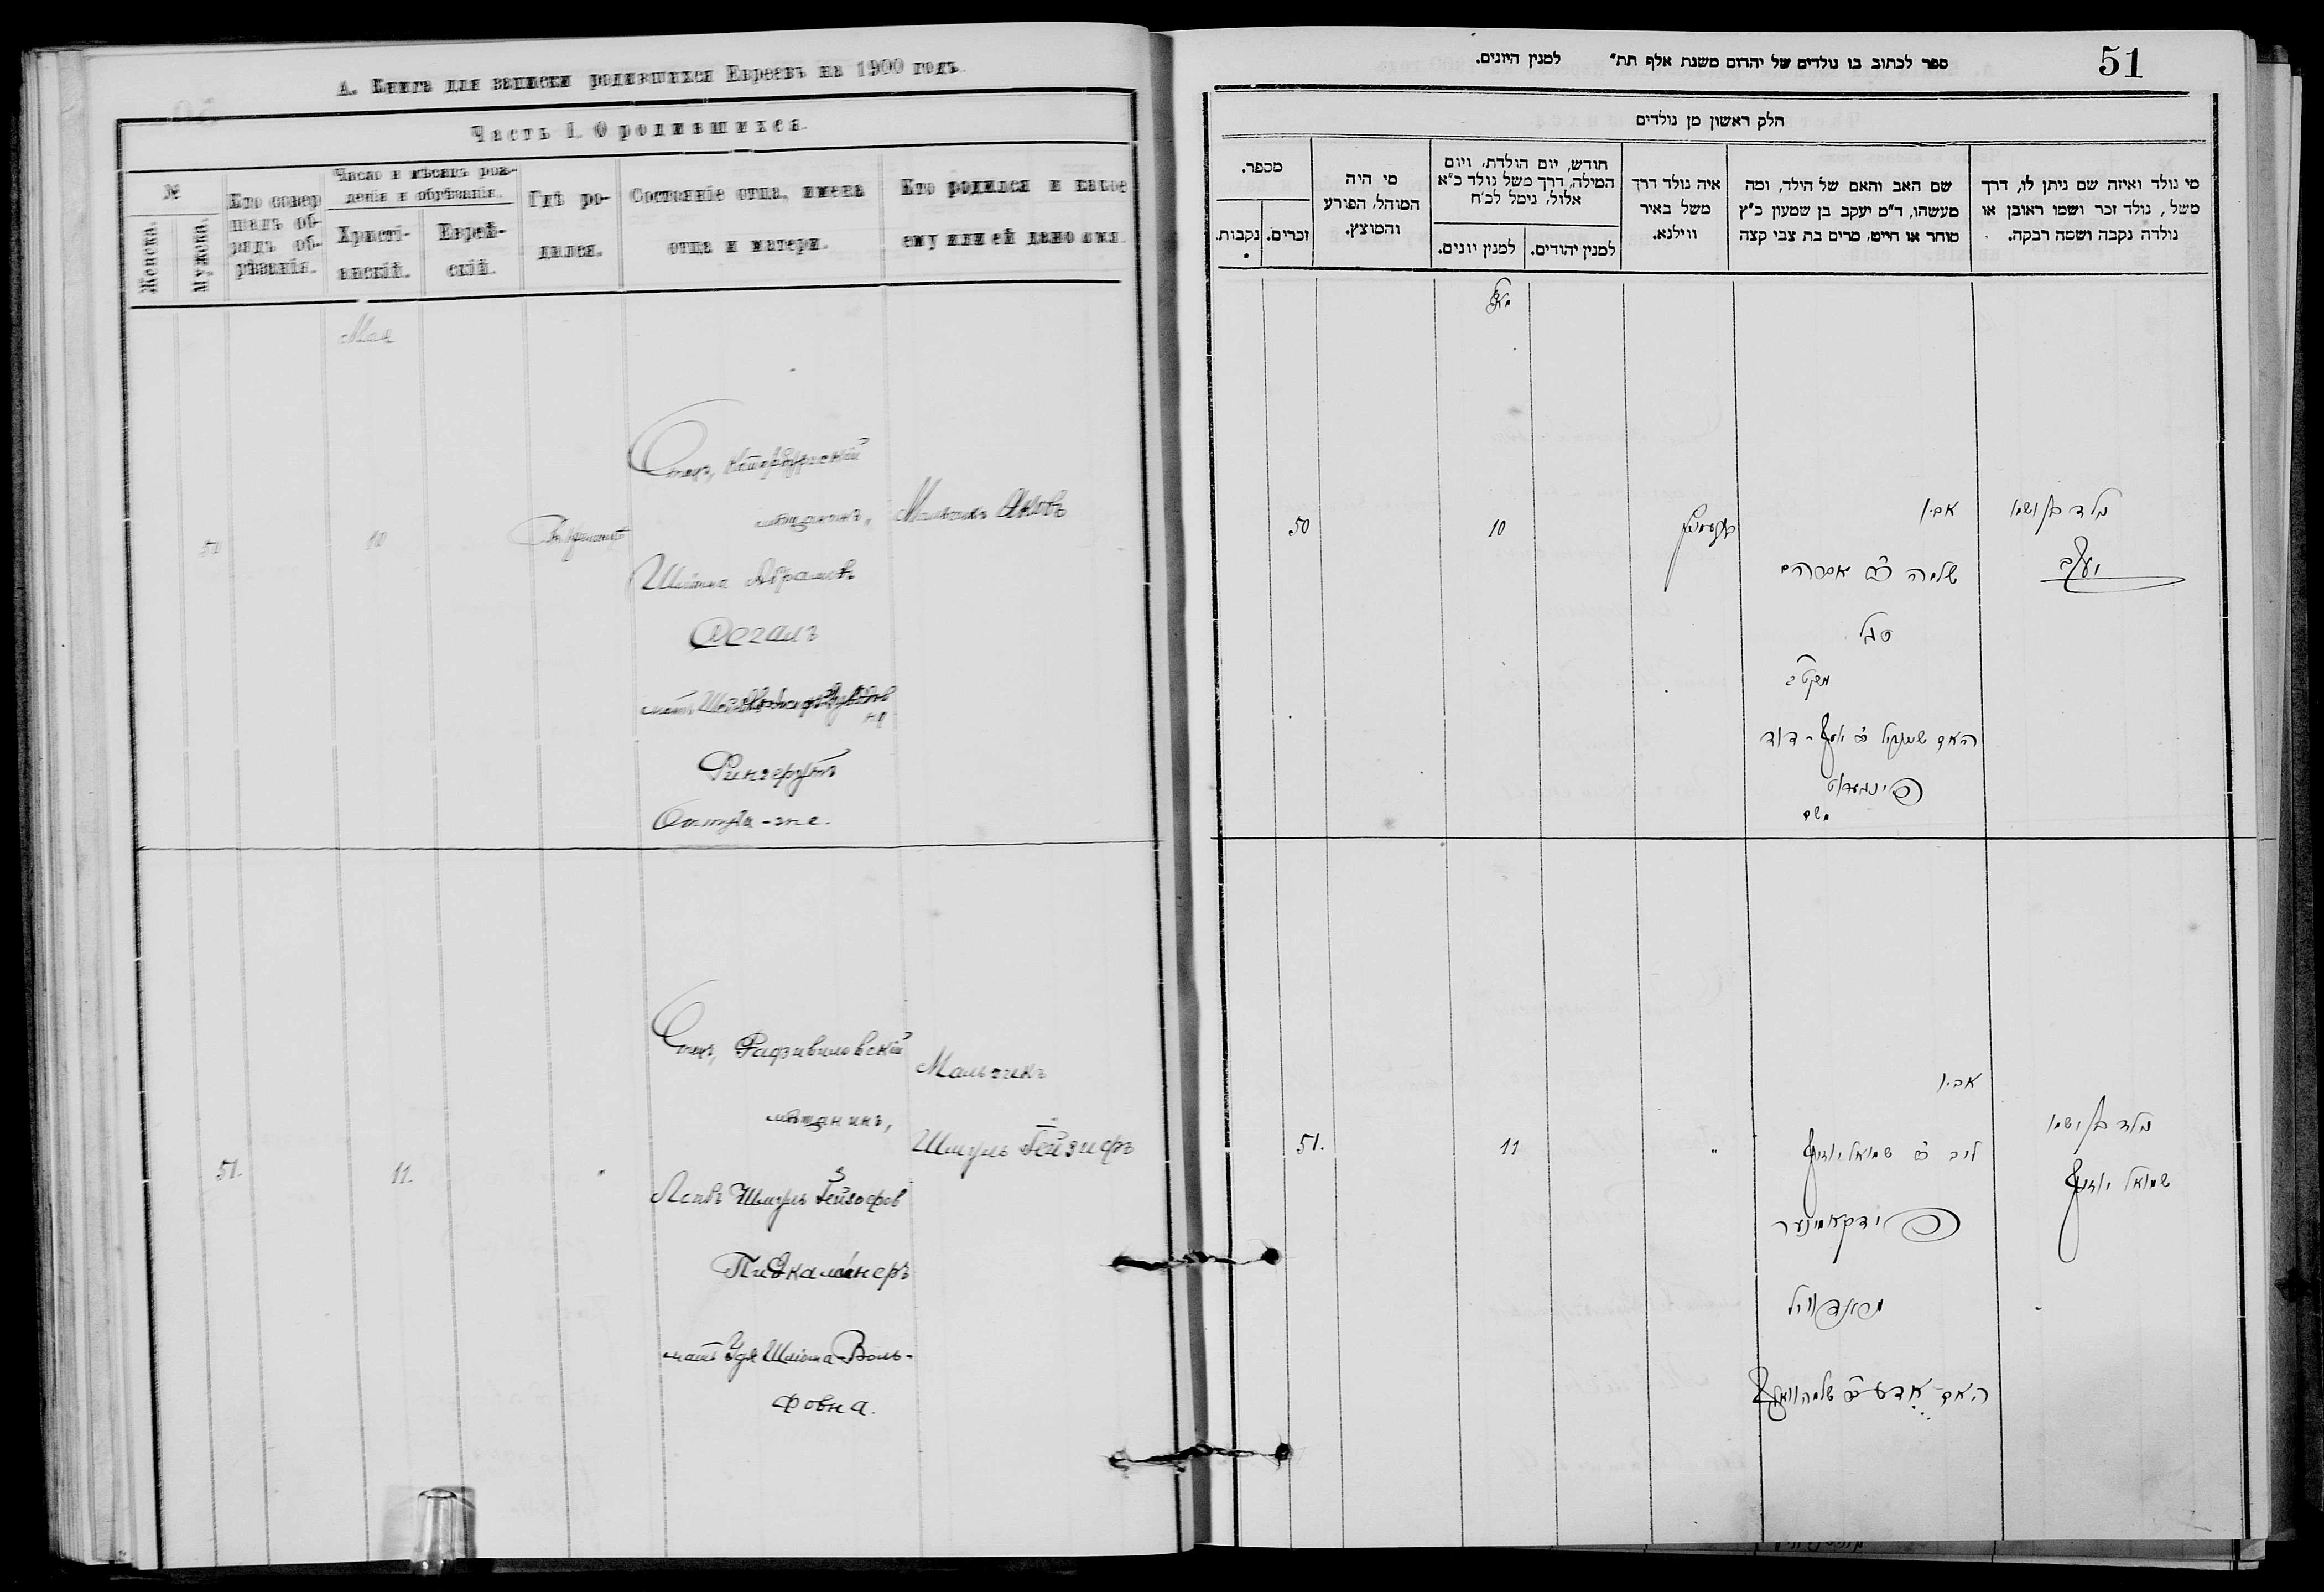 А. Книга для записки родившихся Евреевъ на 1900 годъ.
Часть I. О родившихся.
№
Женска.
Мужеска.
Кто совер
шалъ об-
рядъ об-
рѣзанія.
Число и мѣсяцъ рож-
денія и обрѣзанія.
Христі-
анскій.
Еврей-
скій.
Гдѣ ро-
дился.
Состояніе отца, имена
отца и матери.
Кто родился и какое
ему или ей дано имя.
Мая
50
10
Отецъ,
мѣщанинъ,
Шлiома Абрамовъ
Сегалъ
мать
Рингерутъ
Оттуда-же.
Мальчикъ Яковъ
51.
11.
Отецъ, Радзивиловскій
мѣщанинъ,
Лейбъ Шмуль Гейзифов
Пидкаминеръ
мать Удя Шліома-Воль-
фовна.
Мальчикъ
Шмуль Гейзифъ
51
ספר לכתוב בו נולדים של יהודים משנת אלף תת״ למנין היונים.
חלק ראשון מן נולדים
מספר.
נקבות.
זכרים.
מי היה
המוהל, הפורע
והמוצץ.
חודש, יום הולדת, ויום
המילה, דרך משל נולד כ״א
אלול, נימל לכ״ח
למנין יונים.
למנין יהודים.
איה נולד דרך
משל באיר
ווילנא.
שם האב והאם של הילד, ומה
מעשהו, ד״מ יעקב בן שמעון כ״ץ
סוחר או חייט, מרים בת צבי קצה
מי נולד ואיזה שם ניתן לו, דרך
משל, נולד זכר ושמו ראובן או
נולדה נקבה ושמה רבקה.
מאי
50
10
אביו
שלמה ב״ר אברהם
סגל
רינגערוט
משם
נולד בן ושמו
יעקב
51.
11
״
אביו
ליב ב״ר שמואל יוזיף
פידקאמינער
מראדוויל
האם אודיא ב״ר שלמה וואלף
נולד בן ושמו
שמואל יוזיף